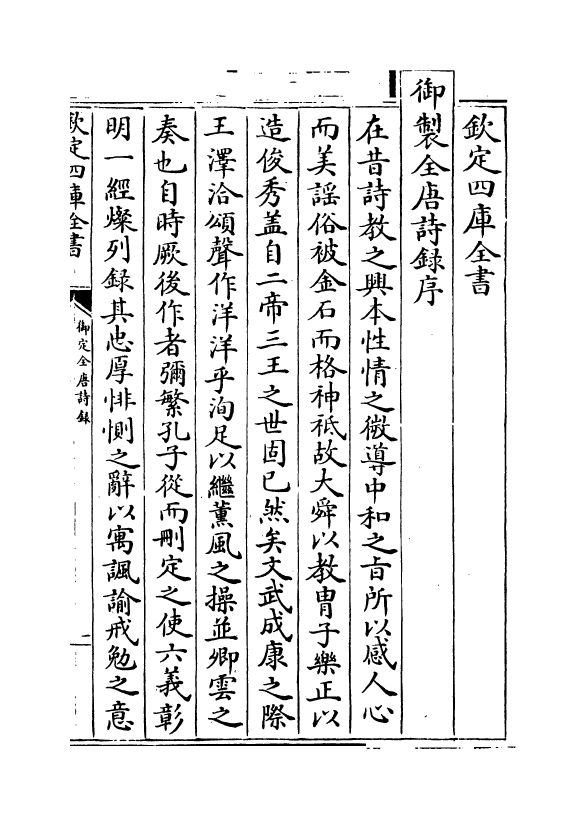 欽定四庫全書
御製全唐詩録序
在昔詩教之興本性情之微導中和之旨所以感人心
而美謡俗被金石而格神祗故大舜以教胄子樂正以
造俊秀盖自二帝三王之世固已然矣文武成康之際
王澤洽頌聲作洋洋乎洵足以繼薰風之操並卿雲之
奏也自時厥後作者彌繁孔子從而刪定之使六義彰
明一經燦列録其忠厚悱惻之辭以寓諷諭戒勉之意
欽定四庫全書
御定全唐詩録